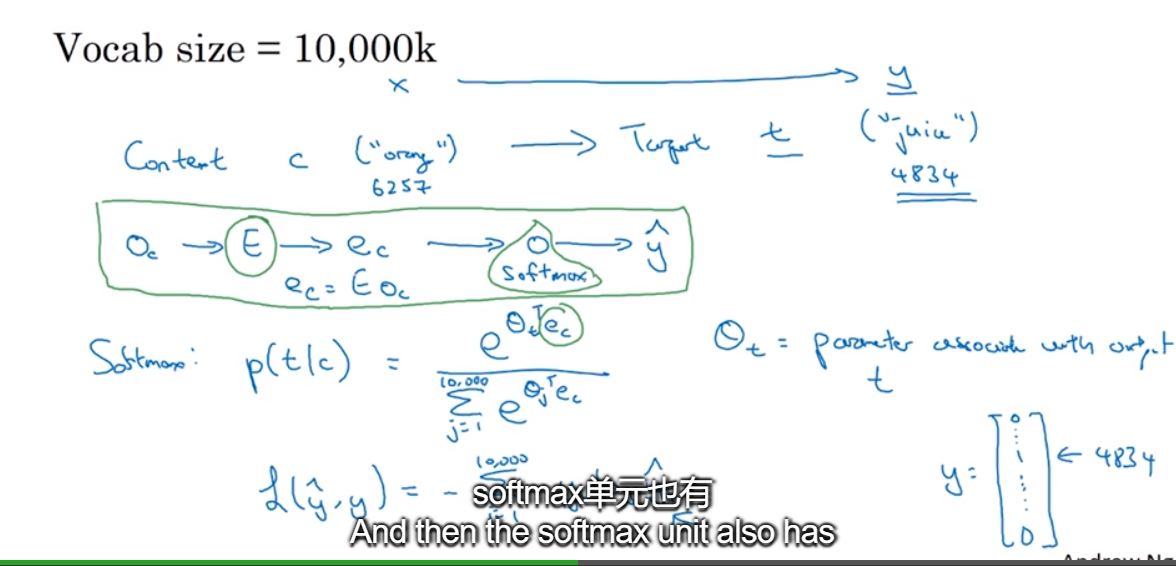 Vocab size = 10,000k
x → y
Content c ("orang") → Target t ("juice")
6257 4834
O_c → E → e_c → O → ŷ
softmax
e_c = E O_c
Softmax: p(t|c) = e^{θ_t^T e_c} / Σ_{j=1}^{10,000} e^{θ_j^T e_c}
θ_t = parameter associate with output t
y = [0 ⋮ 1 ⋮ 0] ← 4834
L(ŷ, y) = - Σ_{i=1}^{10,000}
softmax单元也有
And then the softmax unit also has